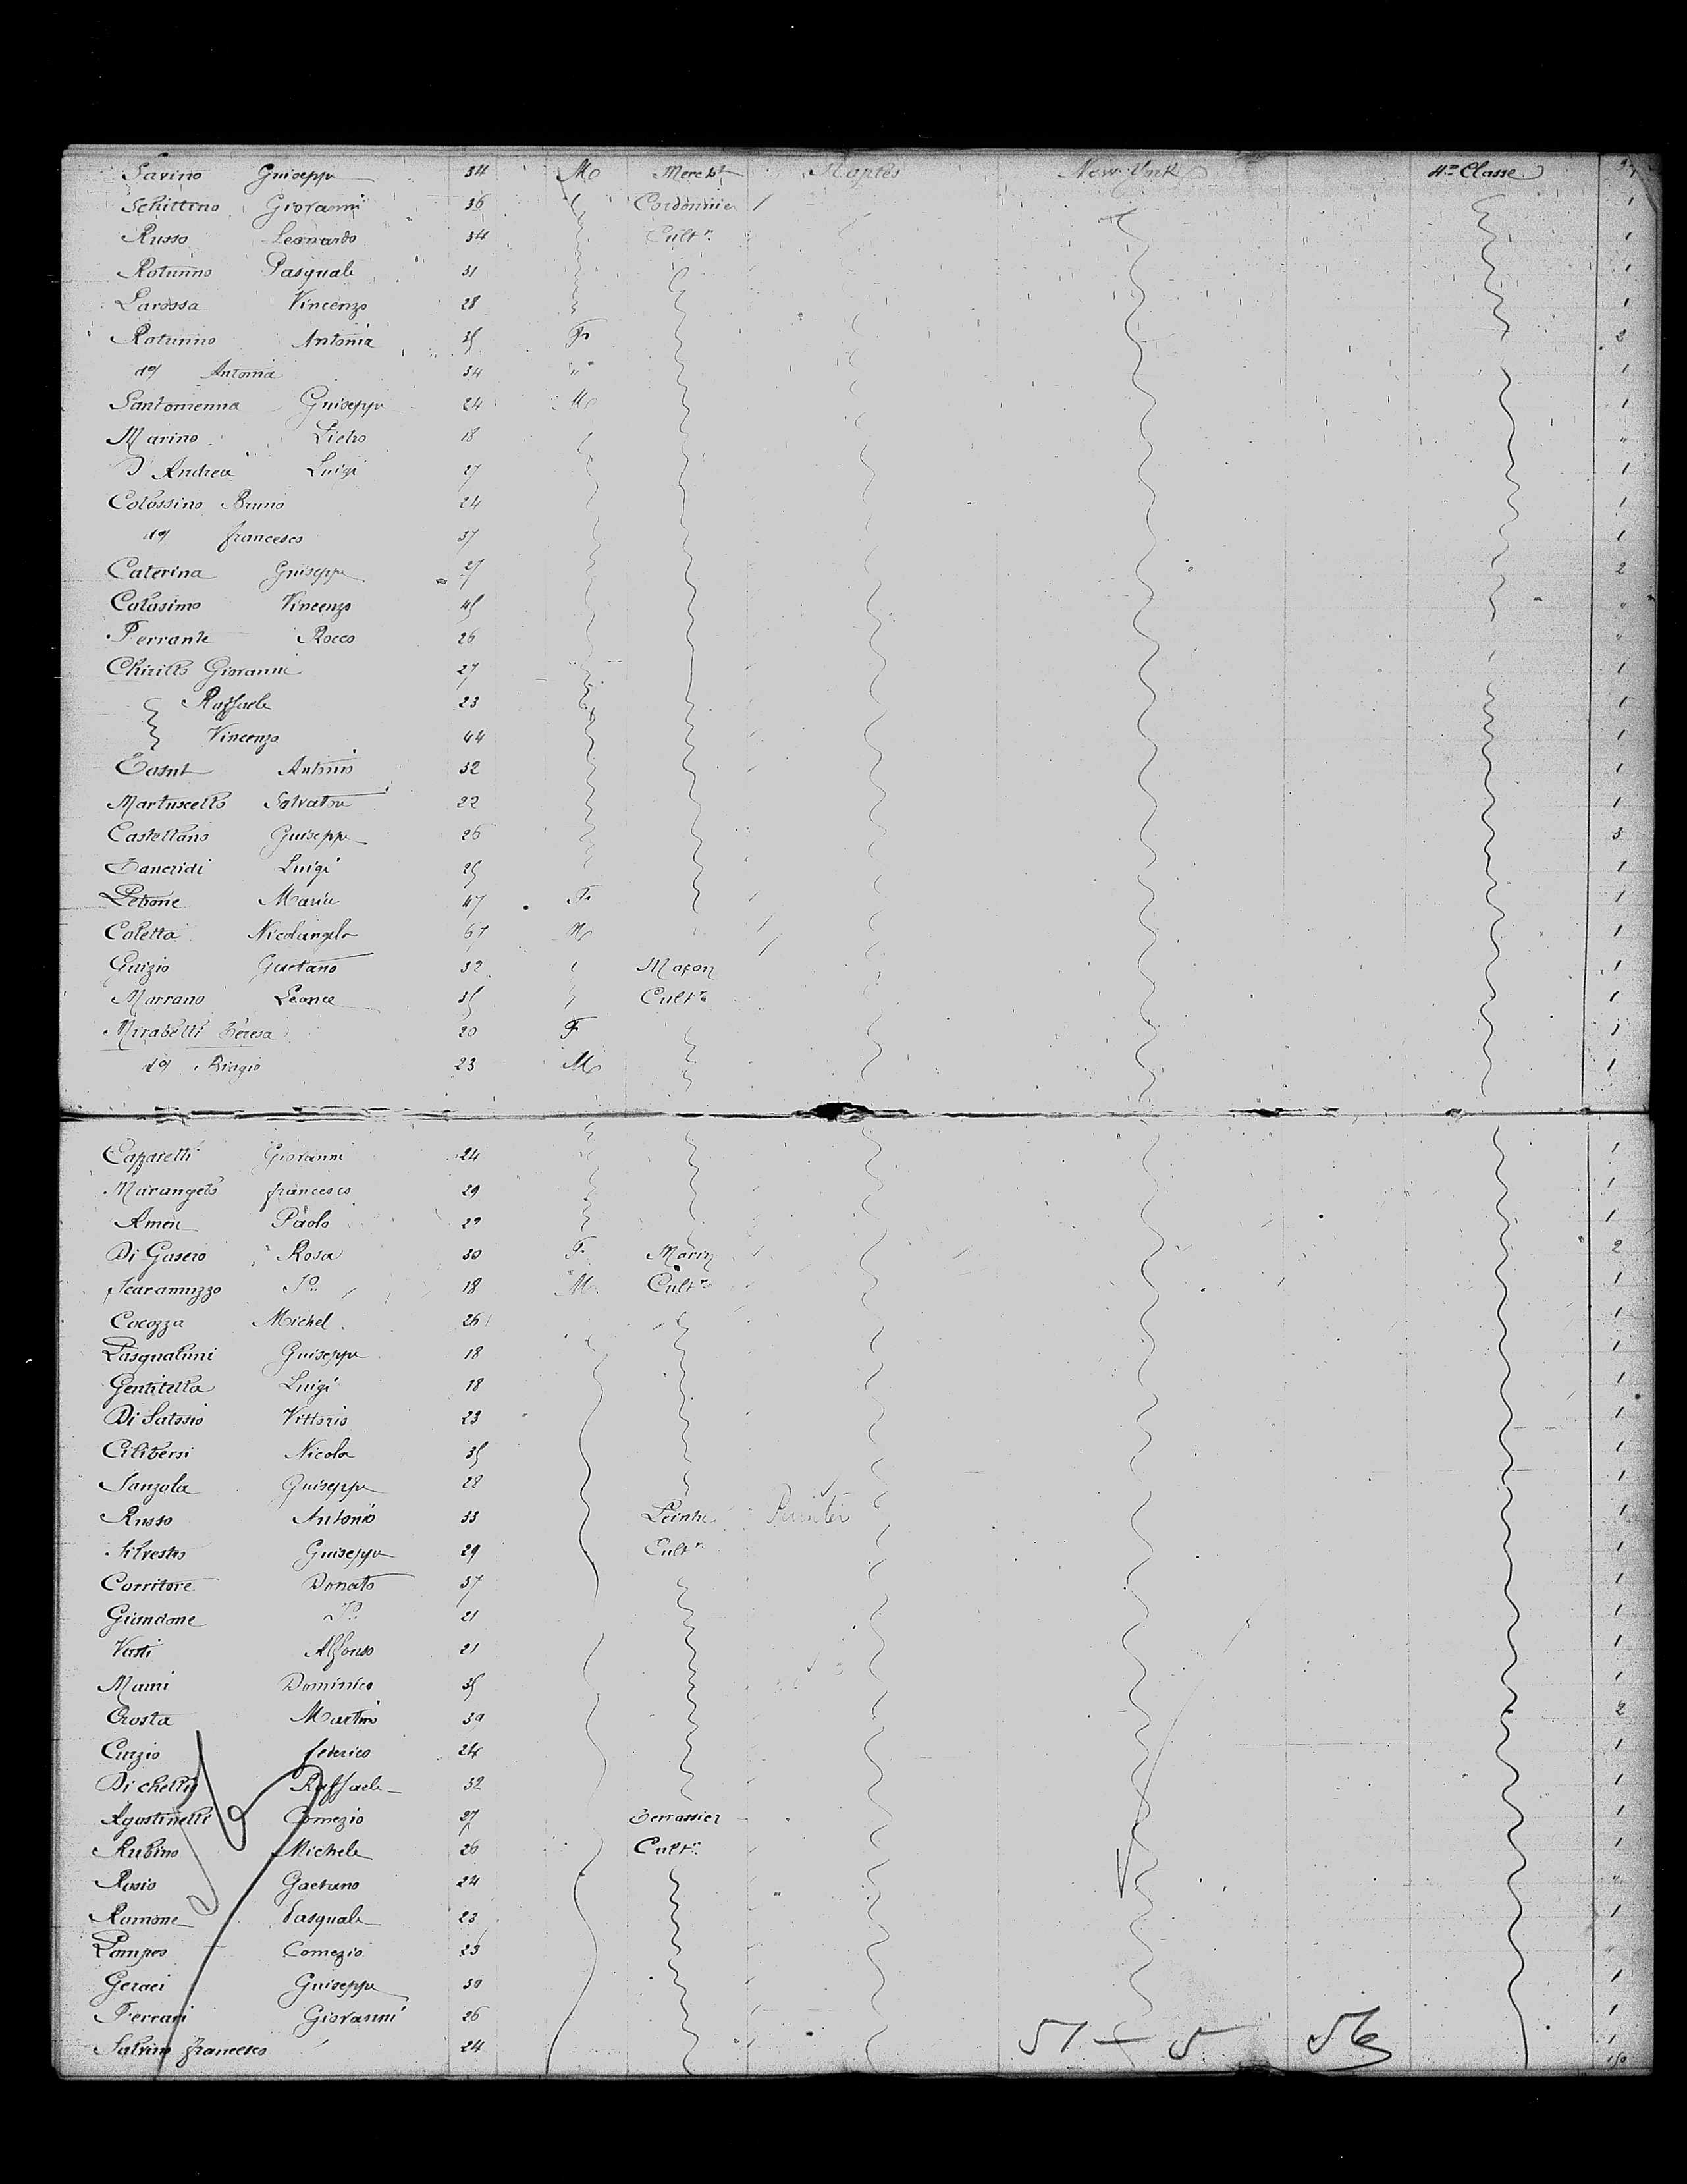 Savino Guiseppe 34 M Merch.t Naples New-York 4me Classe
Schittino Giovanni 36 Cordonnier 1
Russo Leonardo 34 Cultr. 1
Rotunno Pasquale 31 1
Larossa Vincenzo 28 1
Rotunno Antonia 35 F 2
do Antonia 34 " 1
Santomenna Guiseppe 24 M 1
Marino Pietro 18 "
D'Andrea Luigi 27 1
Colossino Bruno 24 1
do francesco 37 1
Caterina Guiseppe 27 2
Colosimo Vincenzo 45 "
Ferrante Rocco 26 "
Chirillo Giovanni 27 1
Raffaele 23 1
Vincenzo 44 1
Antonio 32 1
Martuscello Salvatore 22 1
Castellano Guiseppe 26 3
Tancridi Luigi 25 1
Petrone Maria 47 F 1
Coletta Nicolangelo 67 M 1
Guizio Gaetano 32 Maçon 1
Marrano Leonce 35 Cultr 1
Mirabelli Teresa 20 F 1
do Biagio 23 M 1
Caparelli Giovanni 24 1
Marangelo francesco 29 1
Amen Paolo 29 1
Di Gasero Rosa 30 F Marin 2
Scaramuzzo Jo 18 M Cultr 1
Cocozza Michel 26 1
Pasqualuni Guiseppe 18 1
Gentilella Luigi 18 1
Di Salossio Vittorio 23 1
Ciliberti Nicola 35 1
Sanzola Guiseppe 28 1
Russo Antonio 33 Peintre Painter 1
Silvestro Guiseppe 29 Cultr. 1
Corritore Donato 37 1
Giandone Jo 21 1
Vasti Alfonso 21 1
Maini Dominico 35 1
Crosta Martino 30 2
Curzio federico 24 1
Di chello Raffaele 32 1
Agostinelli Comezio 27 Terrassier 1
Rubino Michele 26 Cultr. 1
Rosio Gaetano 24 "
Ramone Pasquale 23 1
Pompeo Comezio 23 "
Geraci Guiseppe 30 1
Ferrari Giovanni 26 1
Salvino francesco 24 1
51 - 5 56 150